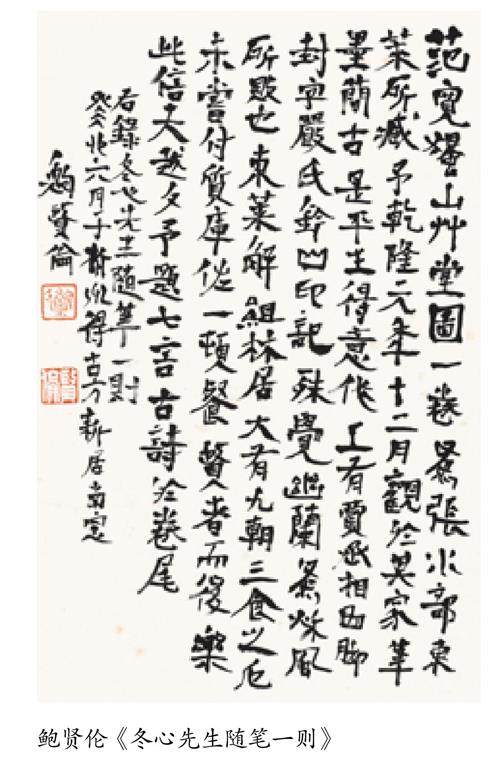 范寬山艸堂圖一卷為張水部東
萊所藏予乾隆元年十二月觀於其家筆
墨簡古是平生得意作上有賈氏相脚
封字嚴氏鈐山印記殊覺幽蘭為秋風
所敗也東萊解組林居大有九朝三食之厄
未嘗付質庫佐一頓餐賢者而後樂
此信夫越夕予題七言古詩於卷尾
右錄冬心先生隨筆一則
六月于得古新居南窗
鮑賢倫
鲍贤伦《冬心先生随笔一则》